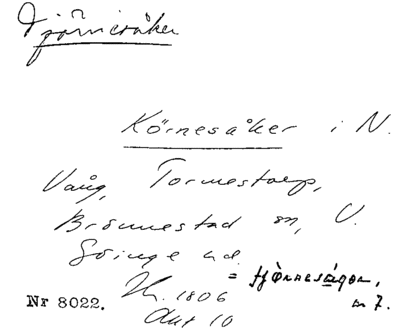 Tjörnesåker
Körnesåker i N.
Vång, Tormestorp,
Brönnestad sn, V.
Göinge hd.
= tjörnesågon,
Nr 8022. Sk. 1806 n 7.
Akt 10